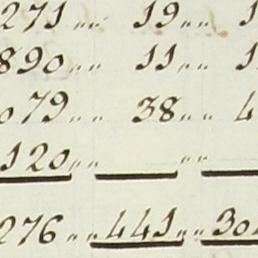 271 „ „ 19 „ „ 1
890 „ „ 11 „ „ 1
079 „ „ 38 „ „ 4
120 „ „ „ „
276 „ „ 441 „ „ 304